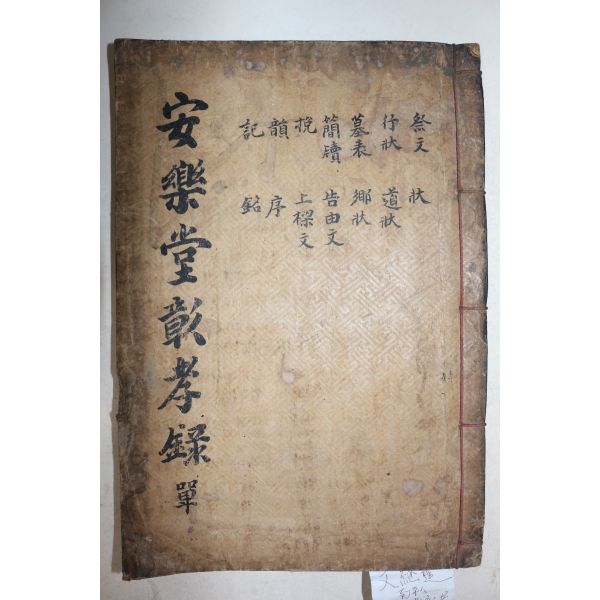 祭文 狀
行狀 道狀
墓表 鄕狀
簡牘 告由文
挽 上樑文
韻 序
記 銘
安樂堂彰孝錄 單